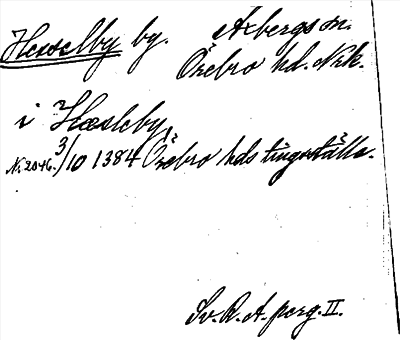 Hesselby by. Axbergs sn.
Örebro hd. Nrk.
i Hæsleby,
N. 2046. 3/10 1384 Örebro hds tingställe.
Sv. R. A. perg. II.